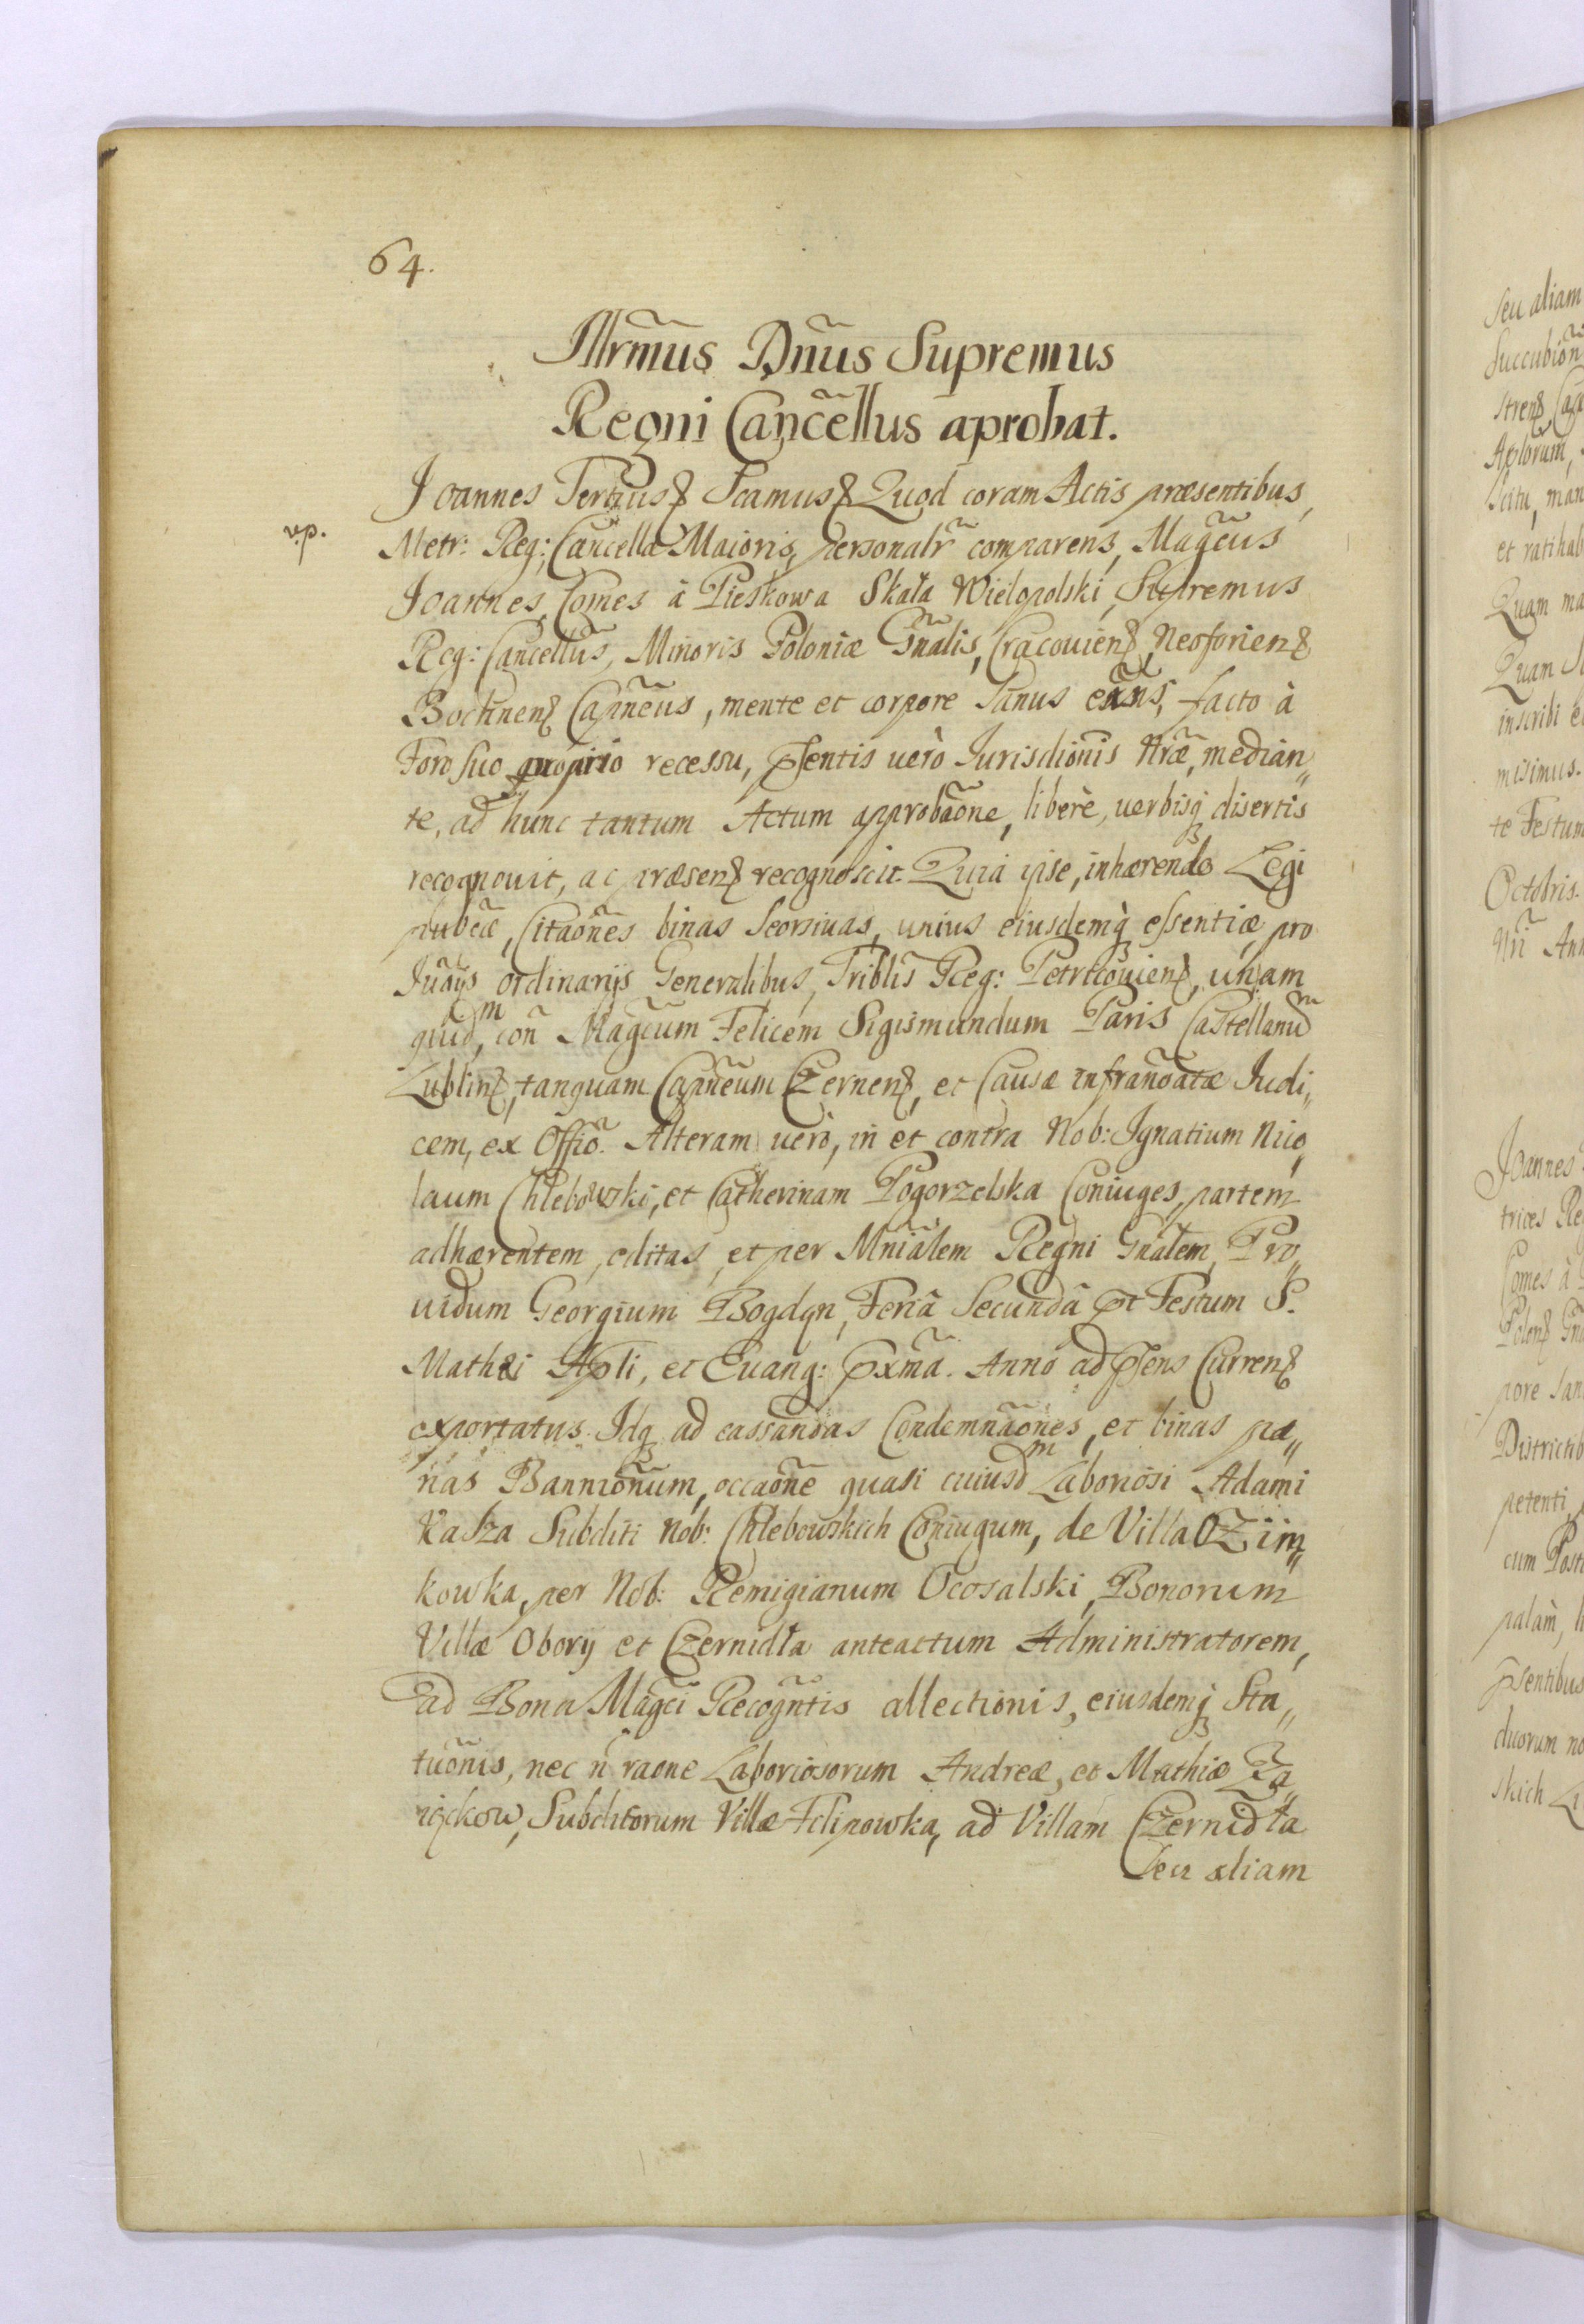 64.
Illrm̃us Dñus Supremus
Regni Canc̃ellus aprobat.
Joannes Tertius Scamus Quod coram Actis præsentibus
Metr: Reg: Cancellæ Maioris, personalr̃ comparens, Magc̃us
Joannes, Comes à Pieskowa Skała Wielopolski, Supremus
Reg: Cancellũs, Minoris Poloniæ Gñalis, Cracouien, Neoforien
Bochnen Capñeus, mente et corpore Sanus exñs, facto à
Foro suo proprio recessu, pſentis uerò Iurisdionis̃ Nr̃æ, median„
te, ad hunc tantum Actum approbãone, liberè, uerbisq̃ disertis
recognouit, ac præsen recognoscit. Quia ipse, inhærendo Legi
pubcæ̃, Citãones binas Seorsiuas, unius eiusdemq̃ eſsentiæ, pro
Iudỹs ordinarijs Generalibus, Triblis̃ Reg: Petricouien, unam
quid, coñ Magc̃um Felicem Sigismundum Paris Castellanũ
Lublin, tanquam Capñeum Czernen, et Causæ infrañoatæ Iudi„
cem, ex Offiõ. Alteram uerò, in et contra Nob: Ignatium Nico„
laum Chlebowski, et Catherinam Pogorzelska Coniuges, partem
adhærentem, editas, et per Mniãlem Regni Gñalem, Pro„
uidum Georgium Bogdan, Feriâ Secundâ pt Festum S.
Mathæi Apli, et Euang: pxm̃a. Anno ad pſens Curren
exportatus. Idq̃ ad cassandas Condemnãones, et binas pæ„
nas Bannionũm, occaõne quasi cuiusdm Laboriosi Adami
Kasza Subditi Nob: Chlebowskich Coniugum, de Villa Ozim„
kowka, per Nob: Remigianum Ocosalski, Bonorum
Villæ Obory et Czernidła anteactum Administratorem,
ad Bona Magc̃i Recogñtis allectionis, eiusdemq̃ Sta„
tuõnis, nec ñ raone Laboriosorum Andreæ, et Mathiæ
Subditorum Villæ Filipowka, ad Villam Czernidła
seu aliam